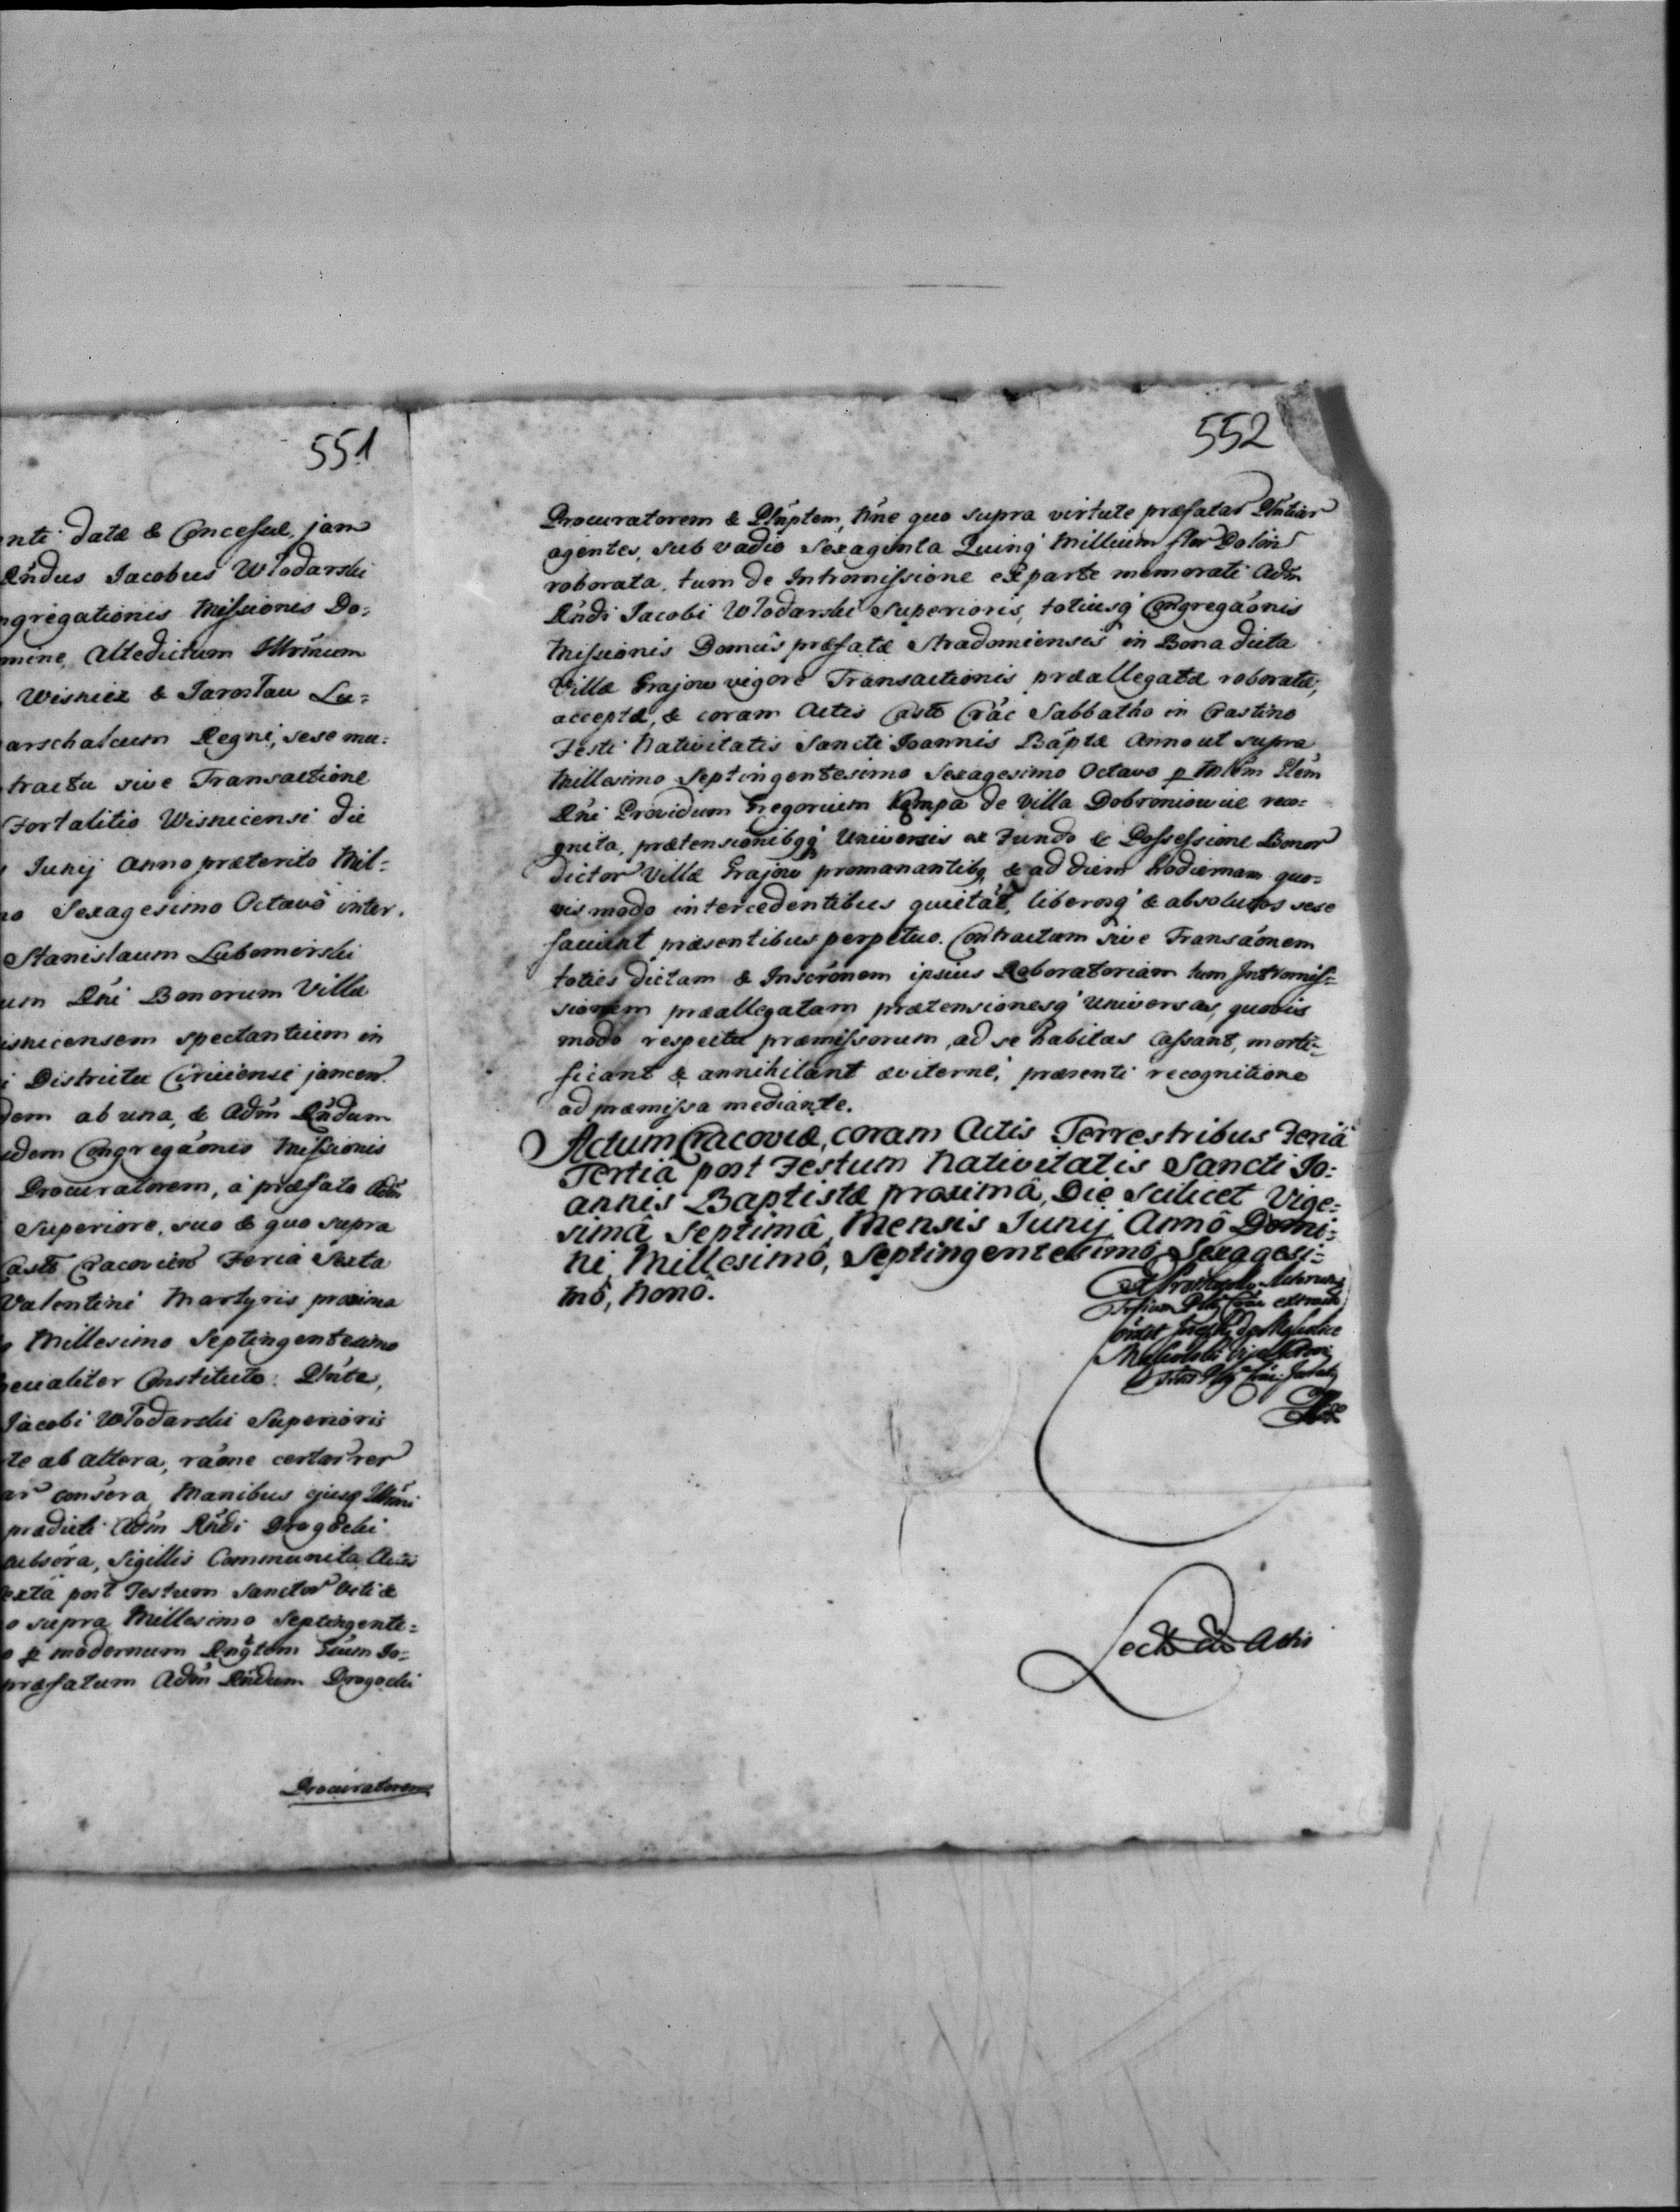 551
nti datæ & Concessæ, jam
Rndus Jacobus Wlodarski
ngregationis Missionis Do=
mine, Altedictum Illrmum
Wisnicz & Jaroslau Lu=
arschalcum Regni, sese mu=
tractu sive Transactione
Fortalitio Wisnicensi die
Junij Anno præterito Mil=
no Sexagesimo Octavô inter.
Stanislaum Lubomirski
um Rni Bonorum Villæ
isnicensem spectantium in
i Districtu jancen
dem ab una, & Adm Rndum
idem Congregaonis Missionis
Procuratorem, à præfato Adm
Superiore, suo & quo supra
Cast Cracovien Feria Sexta
Valentini Martyris proxima
o Millesimo Septingentesimo
pecialiter Constituto. Pnte,
Jacobi Wlodarski Superioris
te ab altera, raone certar rer
ar consera, Manibus ejusq Illrmi
prædicti Adm Rndi Drogocki
subscra, Sigillis Communita, Actis
exta post Festum Sanctor Viti &
o supra Millesimo Septingente=
o p modernum Rngtem Gsum Jo=
præfatum Adm Rndum Drogocki
Procuratorem
552
Procuratorem & Plnptem, Nne quo supra virtute præfatar Plntiar
agentes, sub vadio Sexaginta Quinq Millium flor Polon
roborata, tum de Intromissione ex parte memorati Adm
Rndi Jacobi Wlodarski Superioris, totiusq Congregaonis
Missionis Domûs præfatæ Stradomiensis in Bona dicta
Villæ Grajow vigore Transactionis præallegatæ roboratæ,
acceptæ, & coram Actis Cast Crac Sabbatho in Crastino
Festi Nativitatis Sancti Joannis Baptæ Anno ut supra
Millesimo Septingentesimo Sexagesimo Octavo p Mlem Glem
Rni Providum Gregorium Kompa de Villa Dobroniowice reco=
gnita, prætensionibqq Universis ex Fundo & Possessione Bonor
dictor Villæ Grajow promanantibq, & ad diem hodiernam quo=
vis modo intercedentibus quietat, liberosq & absolutos sese
faciunt præsentibus perpetuo. Contractum sive Transaonem
toties dictam & Inscronem ipsius Roboratoriam tum Intromis=
sionem præallegatam prætensionesq Universas, quovis
modo respectu præmissorum, ad se habitas Cassant, morti=
ficant & annihilant æviterne, præsenti recognitione
ad præmissa mediante.
Actum Cracoviæ, coram Actis Terrestribus Feria
Tertiâ post Festum Nativitatis Sancti Jo=
annis Baptistæ proximâ, Die Scilicet Vige=
simâ Septimâ, Mensis Junij Annô Domi=
ni, Millesimô, Septingentesimô, Sexagesi=
mô, Nonô.
Lect cū Actis